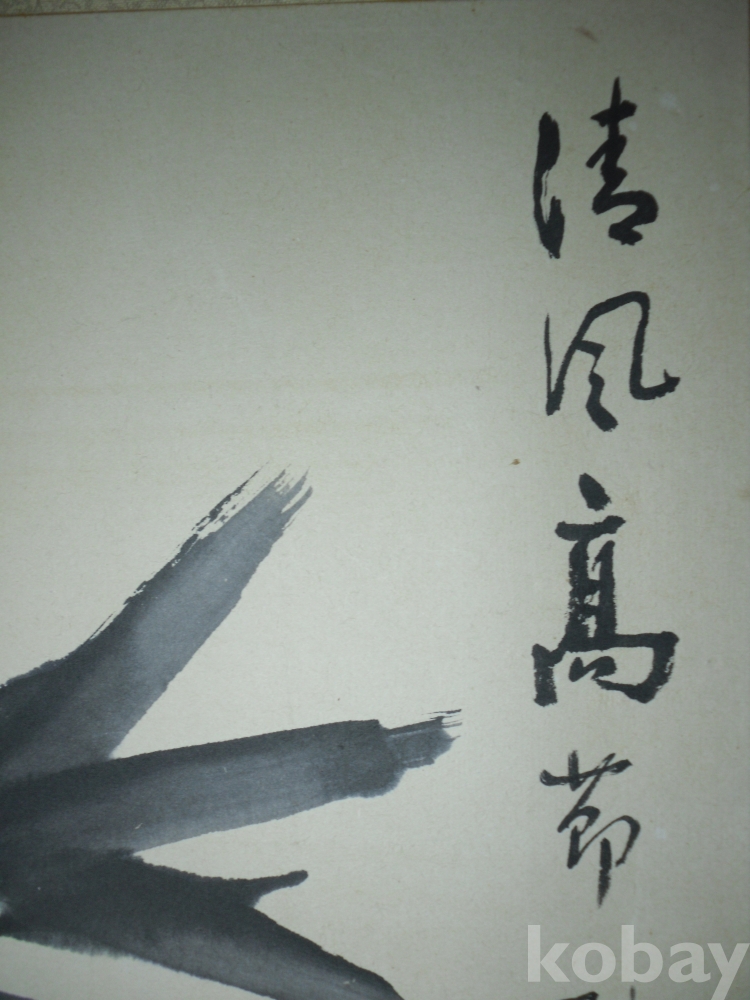 清風高節
kobay